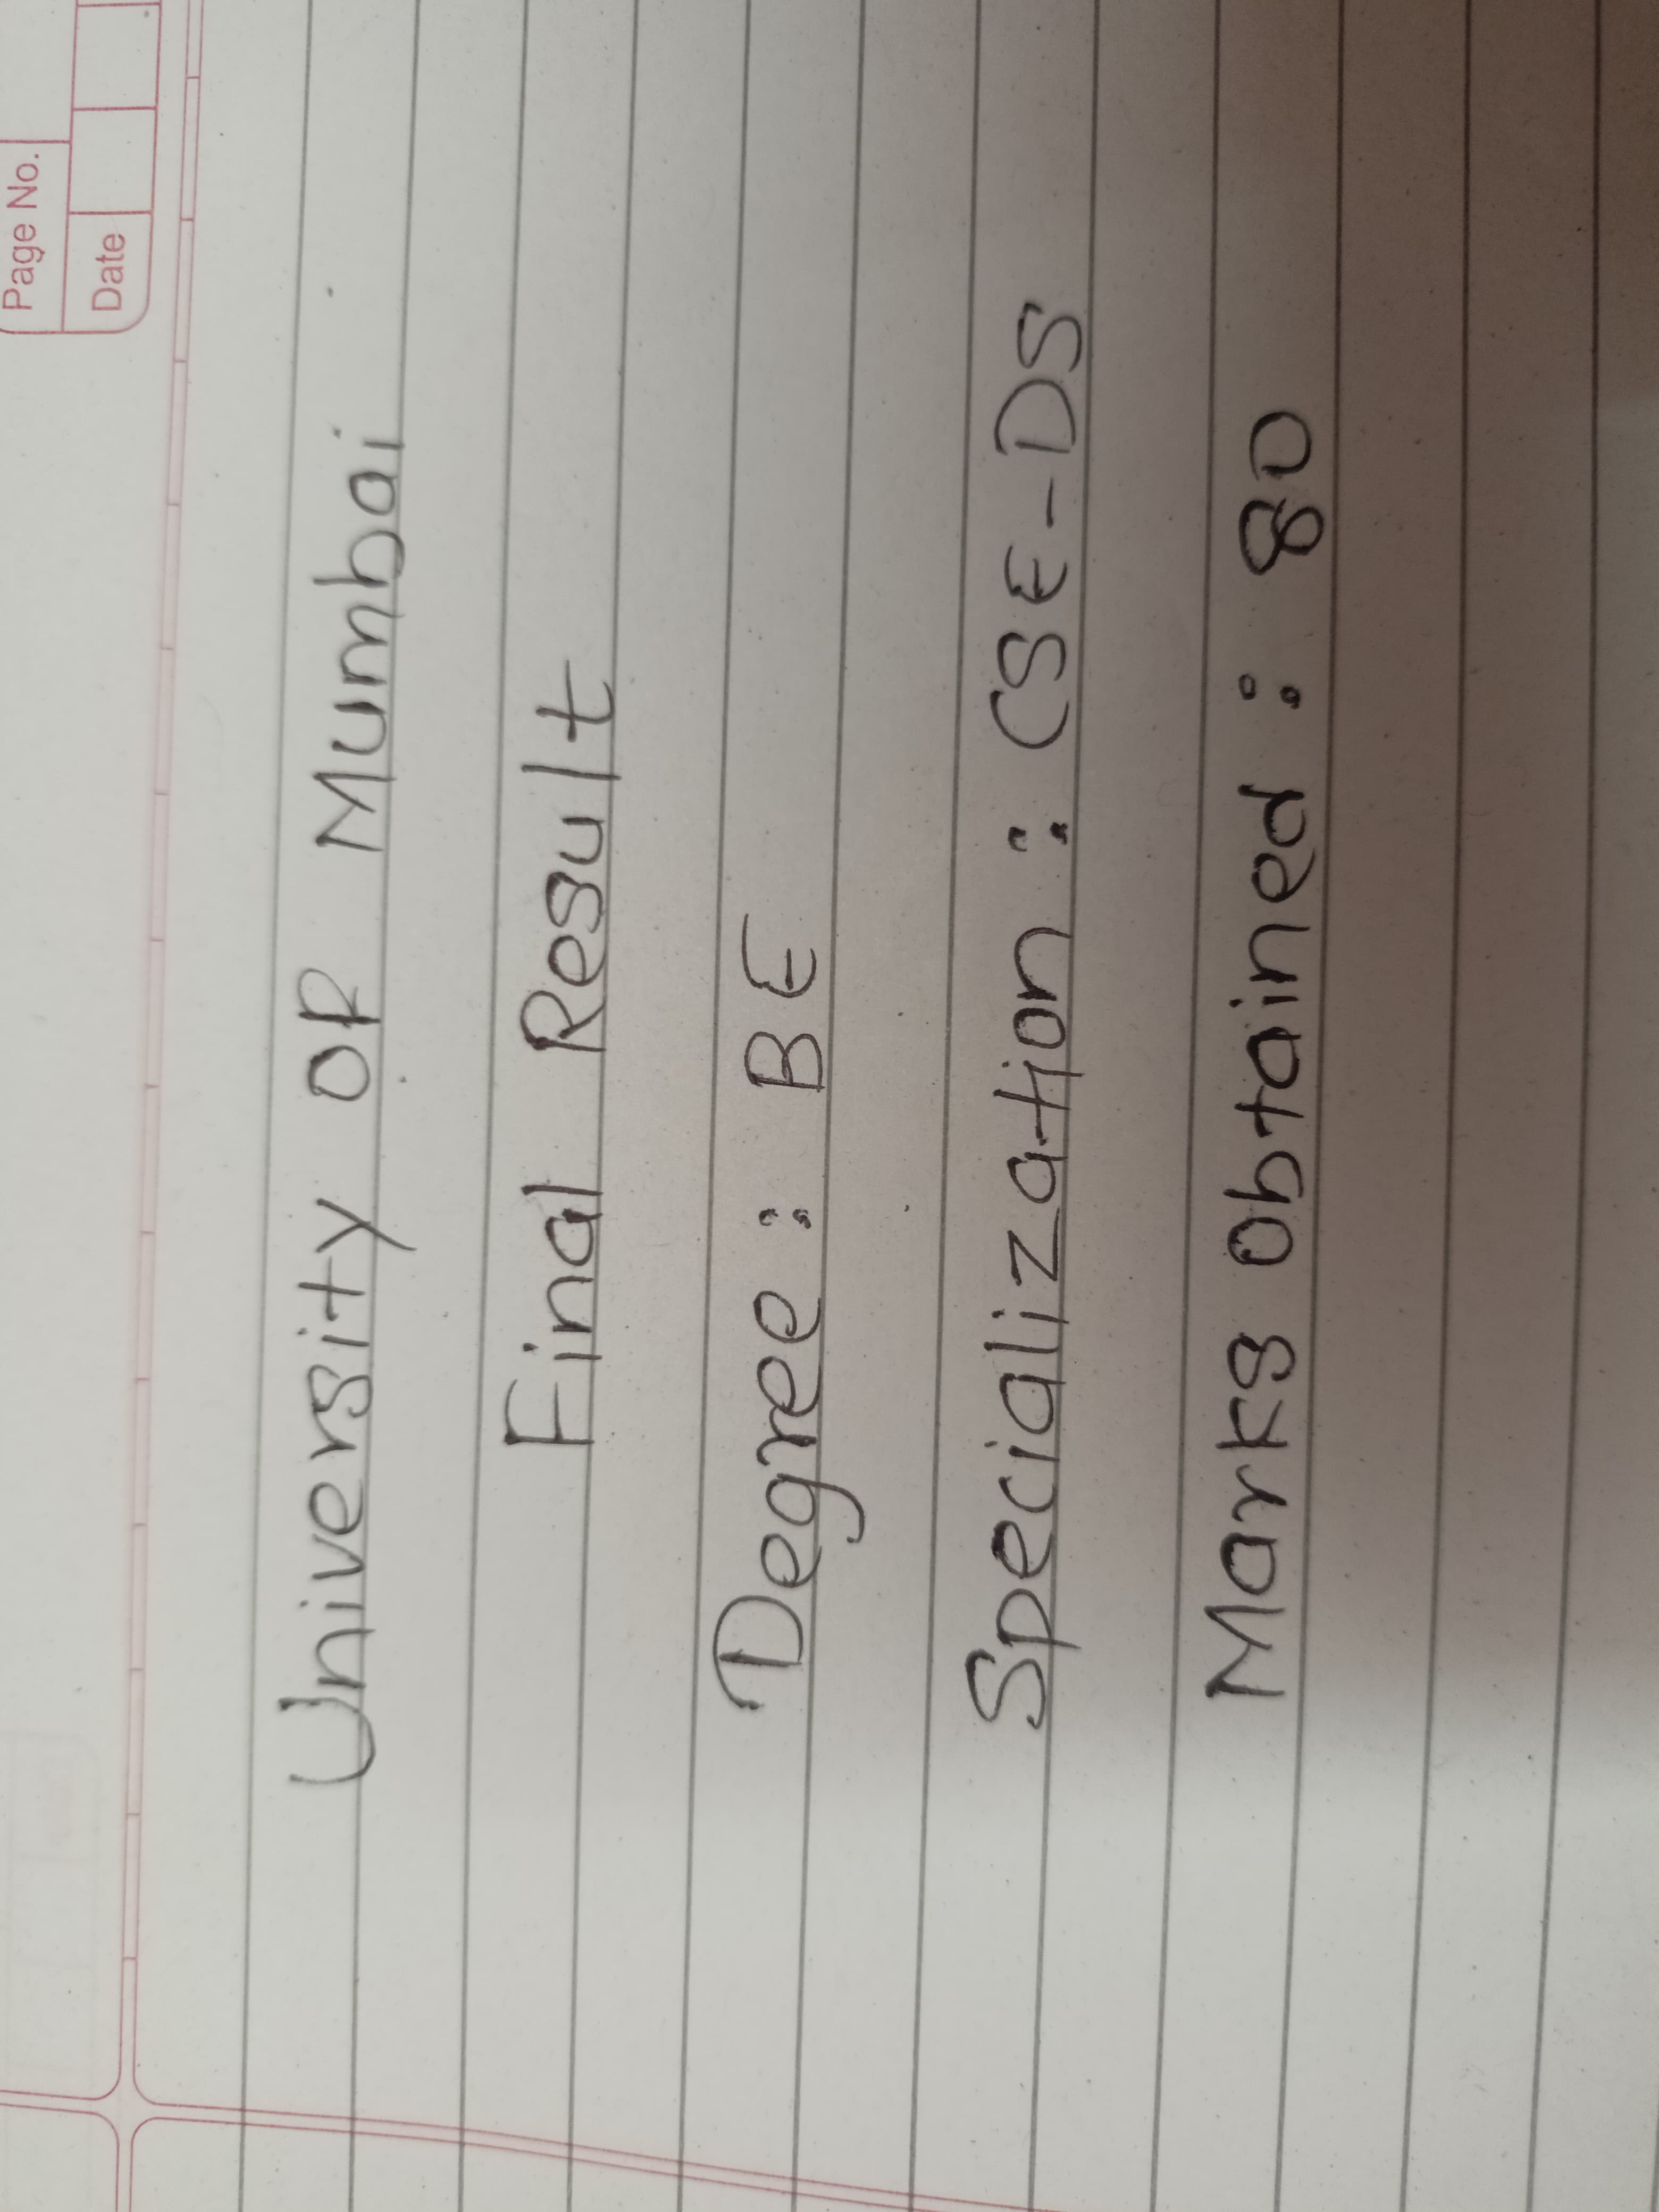 Page No.
Date
University of Mumbai
Final Result
Degree : BE
Specialization : CSE-DS
Marks Obtained : 80